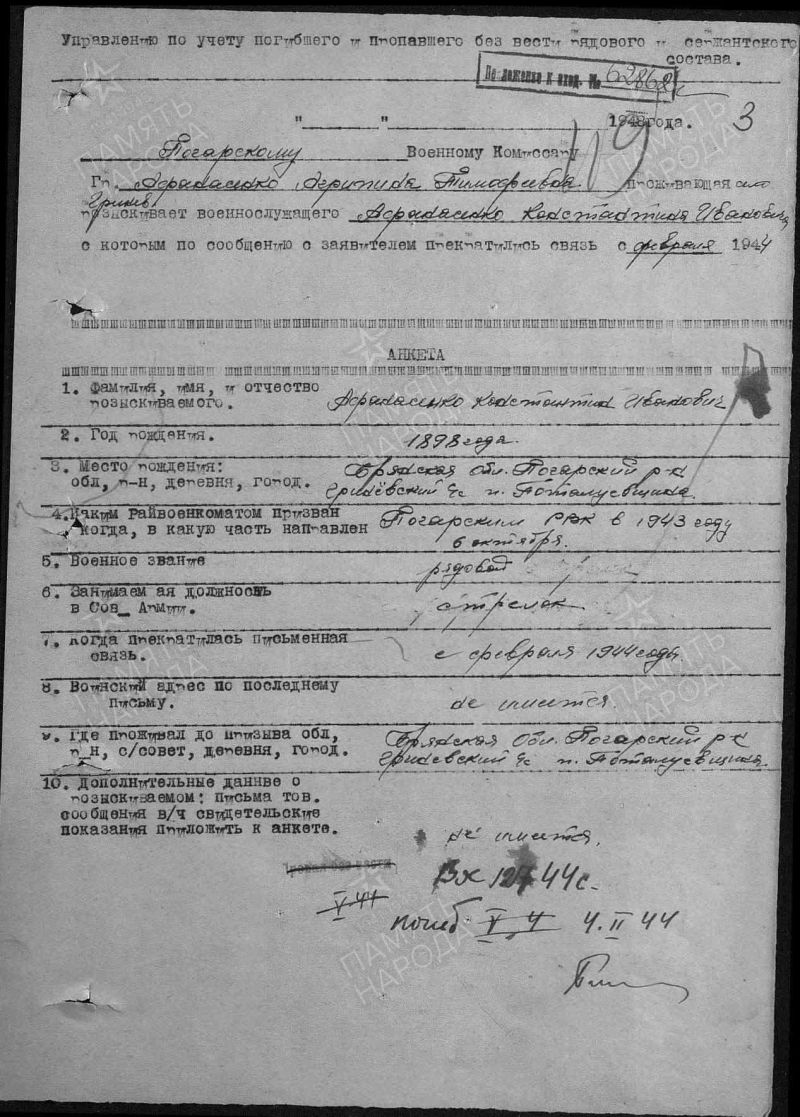 Управлению по учету погибшего и пропавшего без вести рядового и сержантского
состава.
Приложение к вход. № 62868
"______"__________________1948года. 3
119
Погарскому Военному Комиссару
Гр. Афанасенко Агрипина Тимофеевна проживающая село
Гринев
розыскивает военнослужащего Афанасенко Константина Ивановича
с которым по сообщению с заявителем прекратились связь с февраля 1944
АНКЕТА
1. Фамилия, имя, и отчество
розыскиваемого. Афанасенко Константин Иванович
2. Год рождения. 1898 года.
3. Место рождения: Брянская обл. Погарский р-н
обл, р-н, деревня, город. Гринёвский с/с п.
4. Каким Райвоенкоматом призван Погарским РВК в 1943 году
когда, в какую часть направлен 6 октября.
5. Военное звание рядовой
6. Занимаем ая должность
в Сов_ Армии. стрелок
7. Когда прекратилась письменная
связь. с февраля 1944 годы
8. Воинский адрес по последнему
письму. не имеется.
9. Где проживал до призыва обл, Брянская Обл. Погарский р-н
р_н, с/совет, деревня, город. Гриневский с/с п.
10. Дополнительные данные о
розыскиваемом: письма тов.
сообщения в/ч свидетельские
показания приложить к анкете. не имеется.
пропал без вести
Вх 127 44с.
V.44
погиб V 4 4.II 44
ПАМЯТЬ
НАРОДА